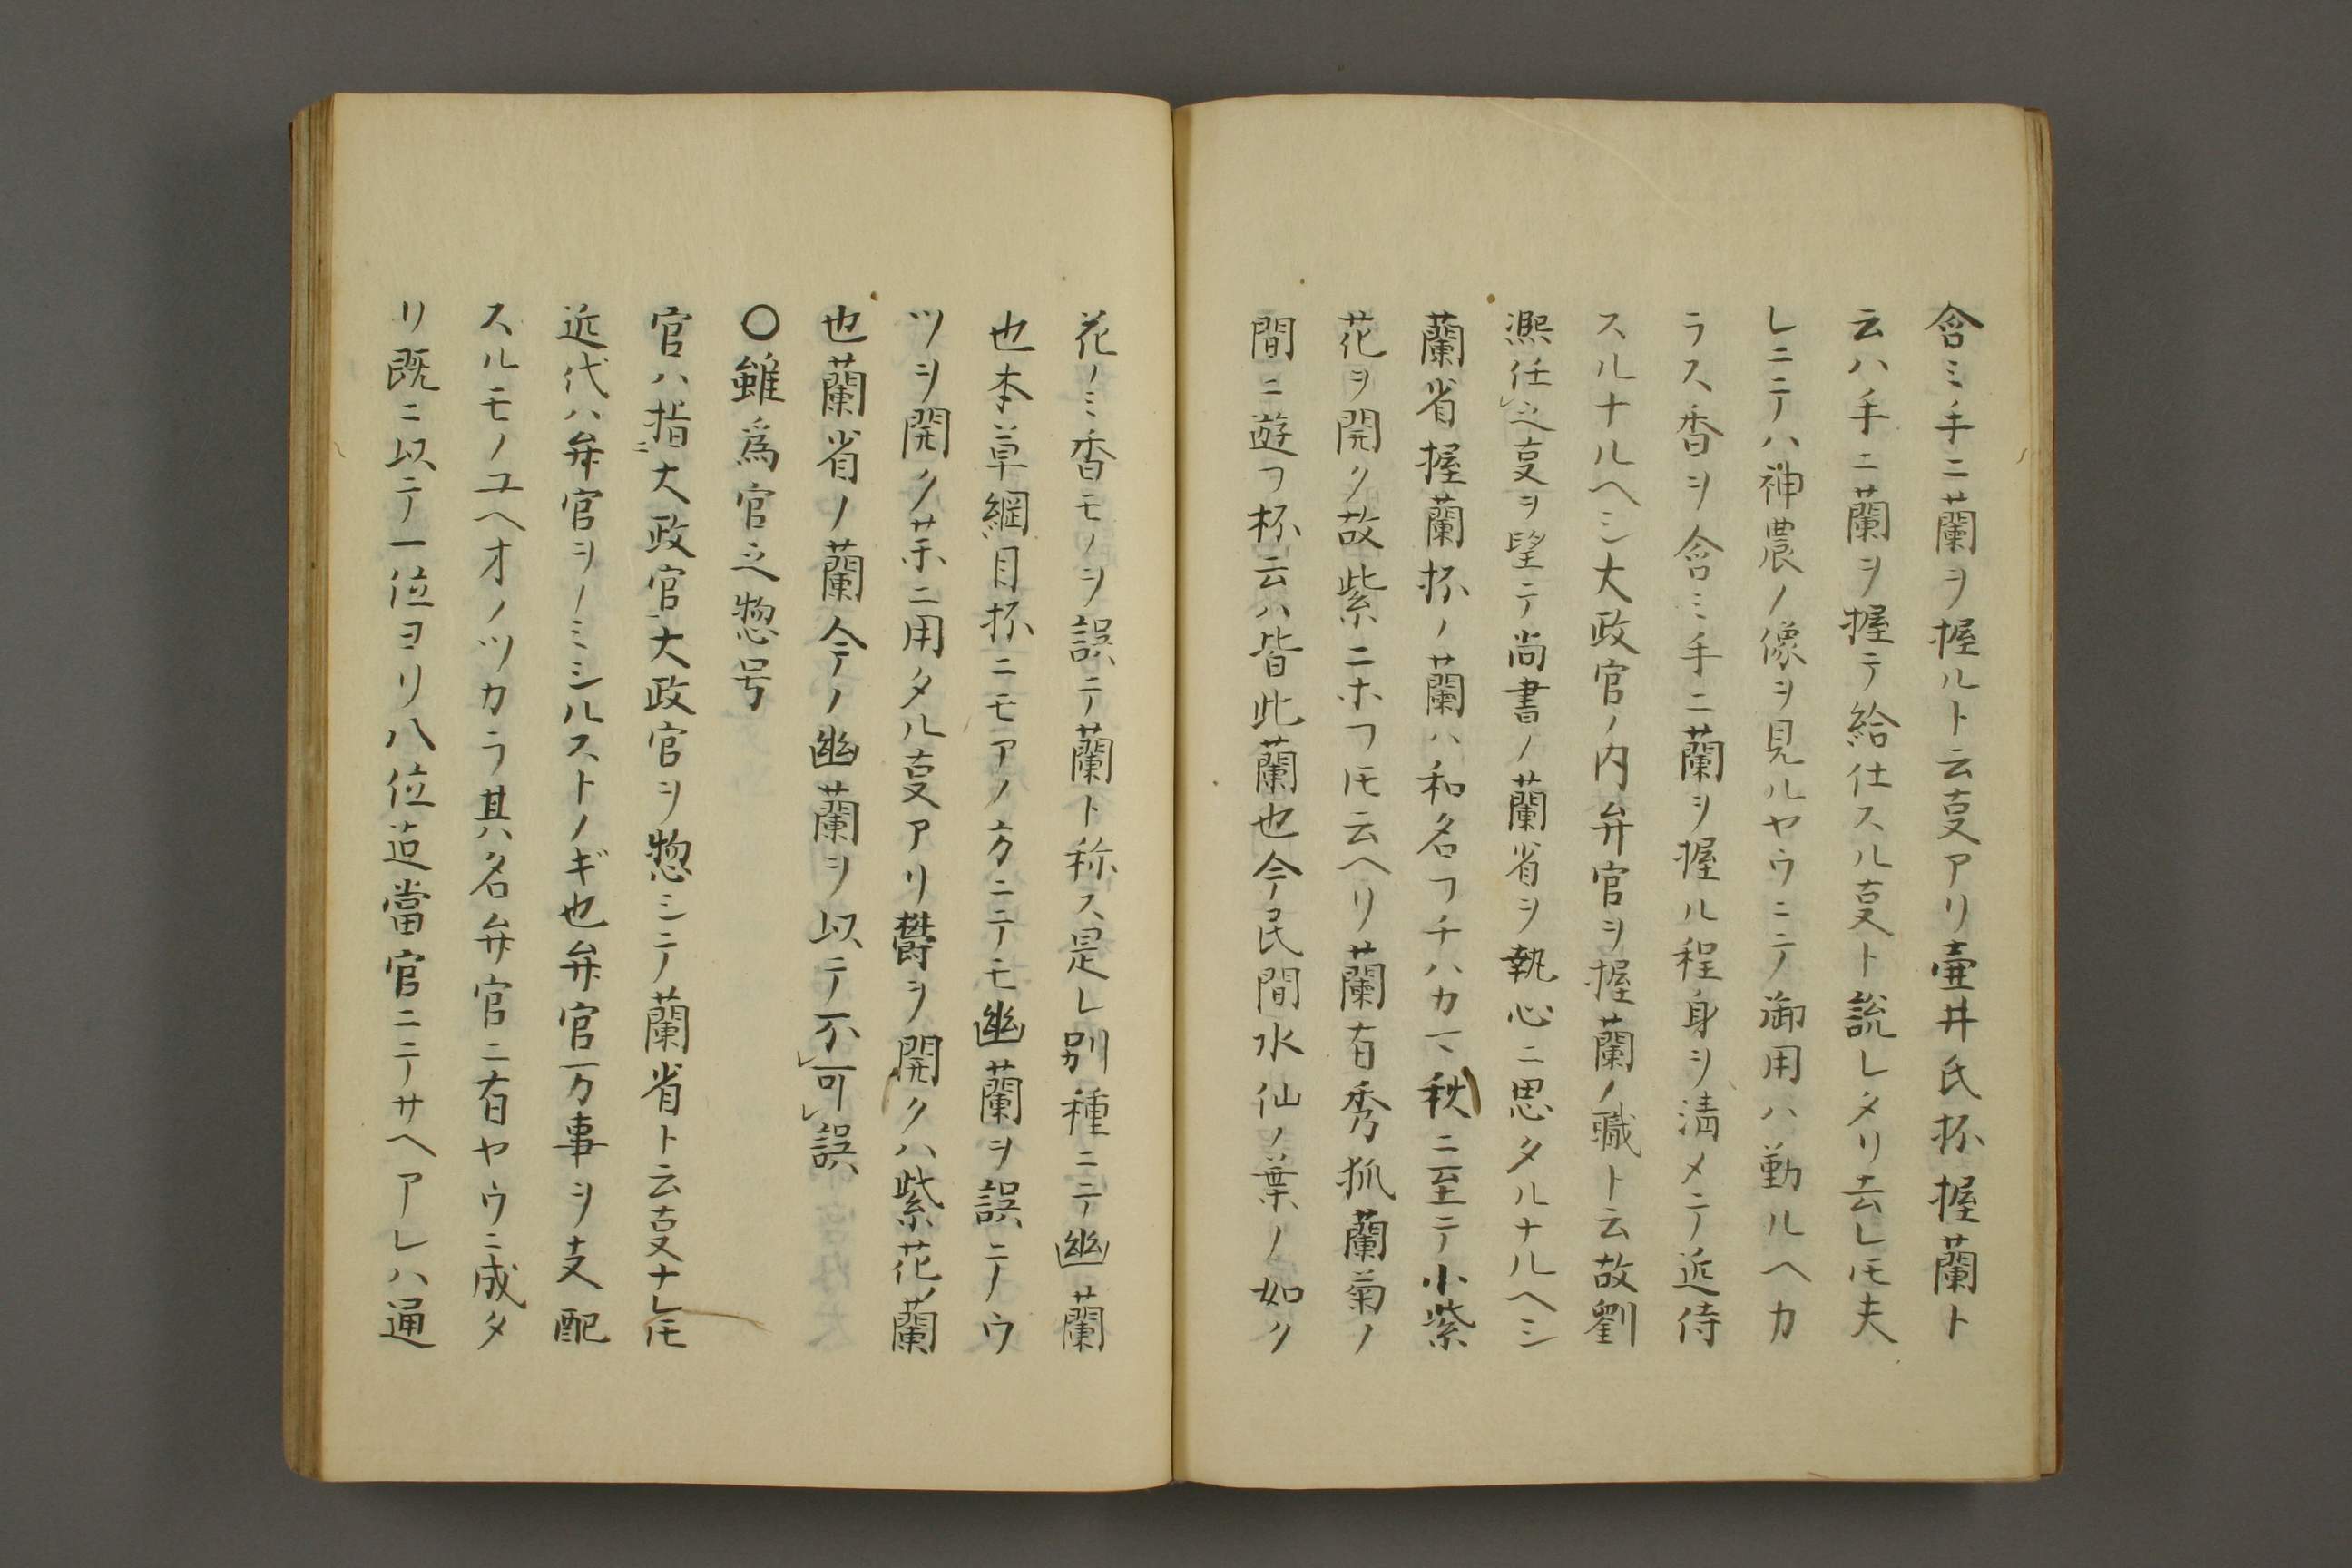 含ミ手ニ蘭ヲ握ルト云叓アリ壷井氏抔握蘭ト
云ハ手ニ蘭ヲ握テ給仕スル叓ト説レタリ去レ𪜈夫
レニテハ神農ノ像ヲ見ルヤウニテ御用ハ勤ルヘカ
ラス香ヲ含ミ手ニ蘭ヲ握ル程身ヲ清メテ近侍
スルナルヘシ大政官ノ内弁官ヲ握蘭ノ職ト云故劉
凞任之叓ヲ望テ尚書ノ蘭省ヲ執心ニ思タルナルヘシ
蘭省握蘭抔ノ蘭ハ和名フチハカマ秋ニ至テ小紫
花ヲ開ク故紫ニホフ𪜈云ヘリ蘭有秀狐蘭菊ノ
間ニ遊フ抔云ハ皆此蘭也今民間水仙ノ葉ノ如ク
花ノミ香モノヲ誤テ蘭ト称ス是レ別種ニテ幽蘭
也本草綱目抔ニモアノ方ニテモ幽蘭ヲ誤テノウ
ツヲ開クサホニ用タル叓アリ欝ヲ開クハ紫花ノ蘭
也蘭省ノ蘭今ノ幽蘭ヲ以テ不可誤
〇雖爲官之惣号
官ハ指大政官大政官ヲ惣シテ蘭省ト云叓ナレ𪜈
近代ハ弁官ヲノミシルストノギ也弁官万事ヲ支配
スルモノユヘオノツカラ其名弁官ニ有ヤウニ成タ
リ既ニ以テ一位ヨリ八位迠當官ニテサヘアレハ通